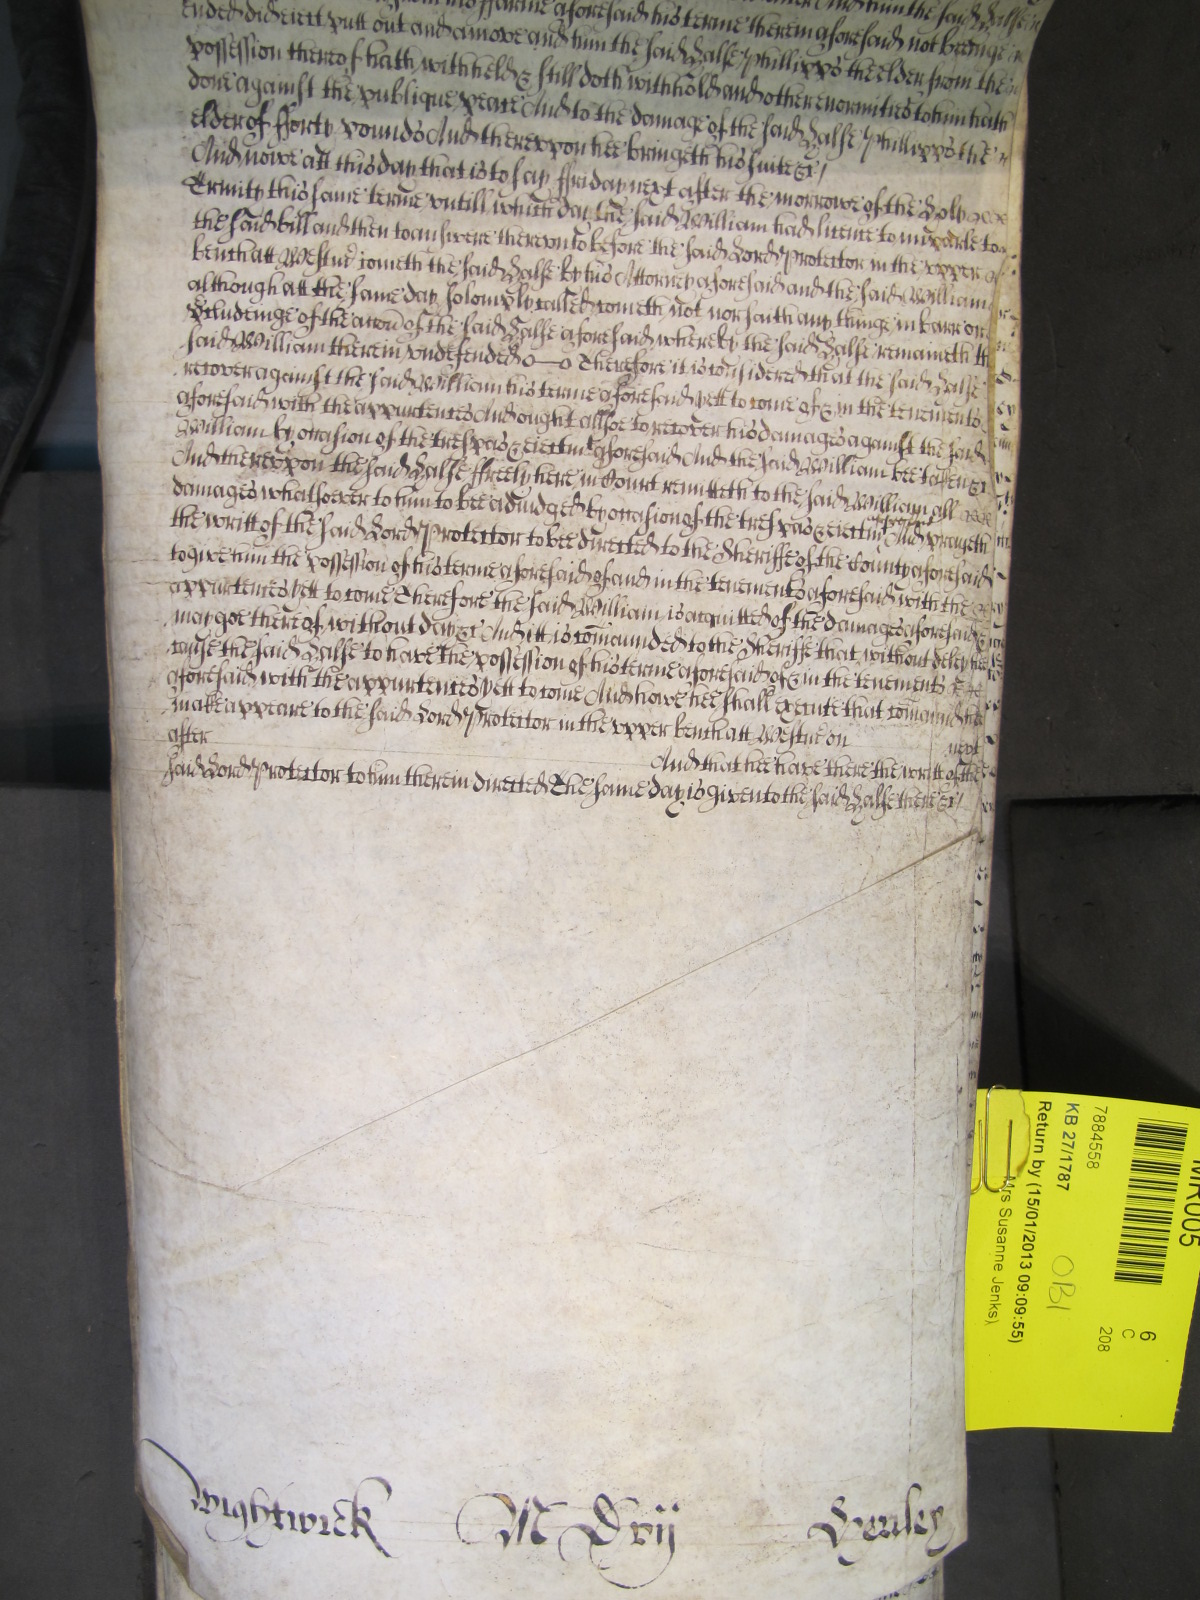 ended did eiect putt out and amove and him the said Halse Phillipps the elder from the
possession thereof hath withheld & still doth withhold and other enormities to him hath
done against the publique peace And to the damage of the said Halse Phillipps the
elder of fforty pounds And thereupon hee bringeth his suite &c
And nowe att this day that is to say ffriday next after the morrowe of the Holy
Trinity this same terme untill which day the said William had licence to imparle to
the said bill and then to answere thereunto before the said Lord Protector in the upper
bench att Westm cometh the said Halse by his Attorney aforesaid and the said William
although att the same day solemply called cometh not nor saith any thinge in barr or
of the accon of the said Halse aforesaid whereby the said Halse remaineth
said William therein undefended Therefore it is considered that the said Halse
recover against the said William his terme aforesaid yett to come of & in the tenements
aforesaid with the appurtences And ought allsoe to recover his damages against the said
William by occasion of the trespas & eiectmt aforesaid And the said William bee taken &c
And thereupon the said Halse ffreely here in Court remitteth to the said William all
damages whatsoever to him to bee adiudged by occasion of the trespas & eiectmt aforesaid And prayeth
the writt of the said Lord Protector to bee directed to the Sheriffe of the County aforesaid
to give him the possession of his terme aforesaid of and in the tenements aforesaid with the
appurtences yett to come Therefore the said William is acquitted of the damages aforesaid &
may goe thereof without day &c And itt is comaunded to the Sheriffe that without delay hee
cause the said Halse to have the possession of his terme aforesaid of & in the tenements
aforesaid with the appurtences yett to come And howe hee shall execute that comaund hee
make appeare to the said Lord Protector in the upper bench att Westm on next
after And that hee have there the writt of the
said Lord Protector to him therein directed The same day is given to the said Halse there &c
Wightwick M Drij Henley
MR005
6
C
208
7884558
KB 27/1787
OBI
Return by (15/01/2013 09:09:55)
Mrs Susanne Jenks)